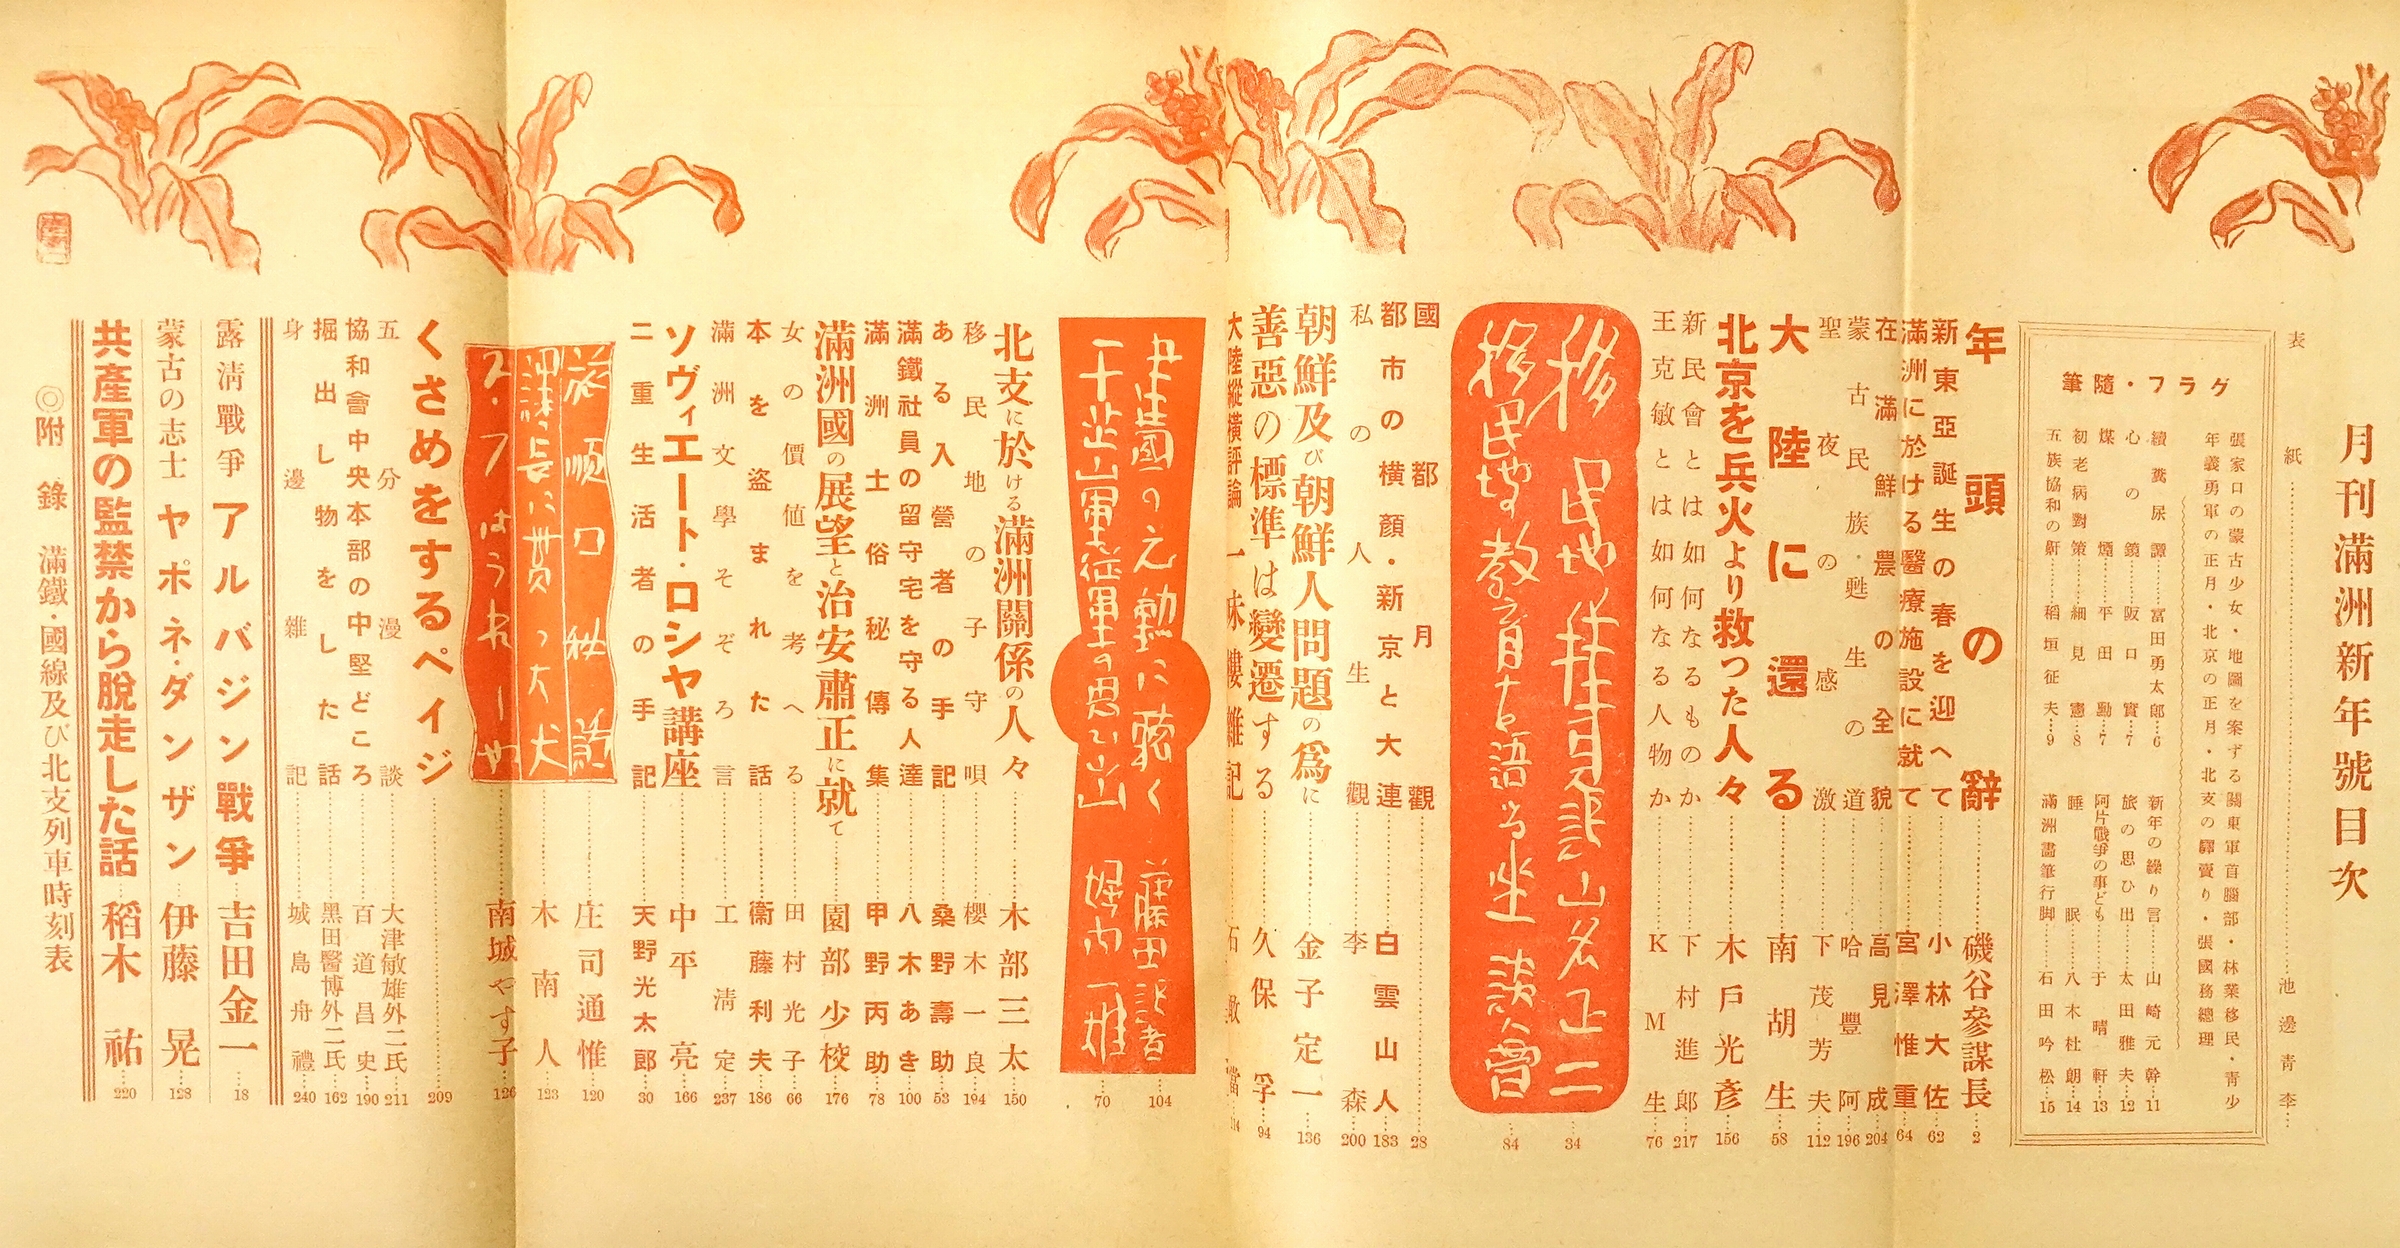 月刊滿洲新年號目次
表紙 池邊靑李
グラフ・隨筆
張家口の蒙古少女・地圖を案ずる關東軍首腦部・林業移民・靑少
年義勇軍の正月・北京の正月・北支の驛賣り・張國務總理
續糞尿譚 富田勇太郎 6
心の鏡 阪口實 7
煤煙 平田勳 7
初老病對策 細見憲 8
五族協和の鼾 稻垣征夫 9
新年の繰り言 山崎元幹 11
旅の思ひ出 太田雅夫 12
阿片戰爭の事ども 于晴軒 13
睡眠 八木杜朗 14
滿洲畵筆行脚 石田吟松 15
年頭の辭 磯谷參謀長 2
新東亞誕生の春を迎へて 小林大佐 62
滿洲に於ける醫療施設に就て 宮澤惟重 64
在滿鮮農の全貌 高見成 204
蒙古民族・甦生の道 哈豐阿 196
聖夜の感激 下茂芳夫 112
大陸に還る 南胡生 58
北京を兵火より救つた人々 木戸光彥 156
新民會とは如何なるものか 下村進郎 217
王克敏とは如何なる人物か KM生 76
移民地 山名正二 34
移民地教育を語る坐談會 84
國都月觀 28
都市の橫顏・新京と大連 白雲山人 183
私の人生觀 李森 200
朝鮮及び朝鮮人問題の爲に 金子定一 136
善惡の標準は變遷する 久保孚 94
大陸縱橫評論 一味縷雜記
建國の元勳に聽く 藤田記者 104
千芷山軍從軍の思ひ出 堀內一雄 70
北支に於ける滿洲關係の人々 木部三太 150
移民地の子守唄 櫻木一良 194
ある入營者の手記 桑野壽助 53
滿鐵社員の留守宅を守る人達 八木あき 100
滿洲士俗秘傳集 甲野丙助 78
滿洲國の展望と治安肅正に就て 園部少校 176
女の價値を考へる 田村光子 66
本を盜まれた話 衞藤利夫 186
滿洲文學そぞろ言 工淸定 237
ソヴィエート・ロシヤ講座 中平亮 166
二重生活者の手記 天野光太郎 30
旅順口秘話 庄司通惟 120
課長に貰つた犬 木南人 123
ス・フはうれしや 南城やす子 126
くさめをするペイジ 209
五分漫談 大津敏雄外二氏 211
協和會中央本部の中堅どころ 百道昌史 190
掘出し物をした話 黑田醫博外二氏 162
身邊雜記 城島舟禮 240
露淸戰爭 アルバジン戰爭 吉田金一 18
蒙古の志士 ヤポネ・ダンザン 伊藤晃 128
共產軍の監禁から脫走した話 稻木祐 220
◎附錄 滿鐵・國線及び北支列車時刻表